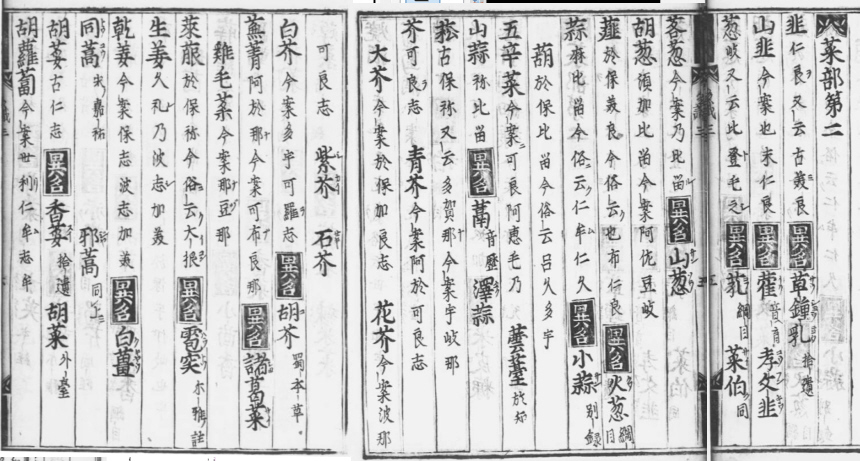 菜部第二
韭 仁良又云古美良 異名 草鍾乳 拾遺
山韭 今案也末仁良 異名 藿 音育 孝文韭
葱 岐又云比登毛之 異名 芤 綱目 菜伯 同
茖葱 今案乃比苗 異名 山葱
胡葱 須加比苗今案阿佐豆岐
薤 於保美良今俗云也布仁良 異名 火葱 綱目
蒜 比苗今俗云仁牟仁久 異名 小蒜 別録
葫 於保比苗今俗云呂久多宇
五辛菜 今案可良阿恵毛乃 蕓薹 於知
山蒜 祢比苗 異名 蒚 音歷 澤蒜
菘 古保祢又云多賀那今案宇岐那
芥 可良志 青芥 今案阿於可良志
大芥 今案於保加良志 花芥 今案波那
可良志 紫芥 石芥
白芥 今案多宇可羅志 異名 胡芥 蜀本草
蕪菁 阿於那今案可布良那 異名 諸葛菜
雞毛菜 今案那豆那
萊菔 於保祢今俗云大根 異名 雹突 尓雅註
生姜 久礼乃波志加美
乾姜 今案保志波志加美 異名 白薑
同蒿 宋嘉祐 邪蒿 同上
胡荽 古仁志 異名 香荽 拾遺 胡菜 外臺
胡蘿蔔 今案世利仁牟志牟